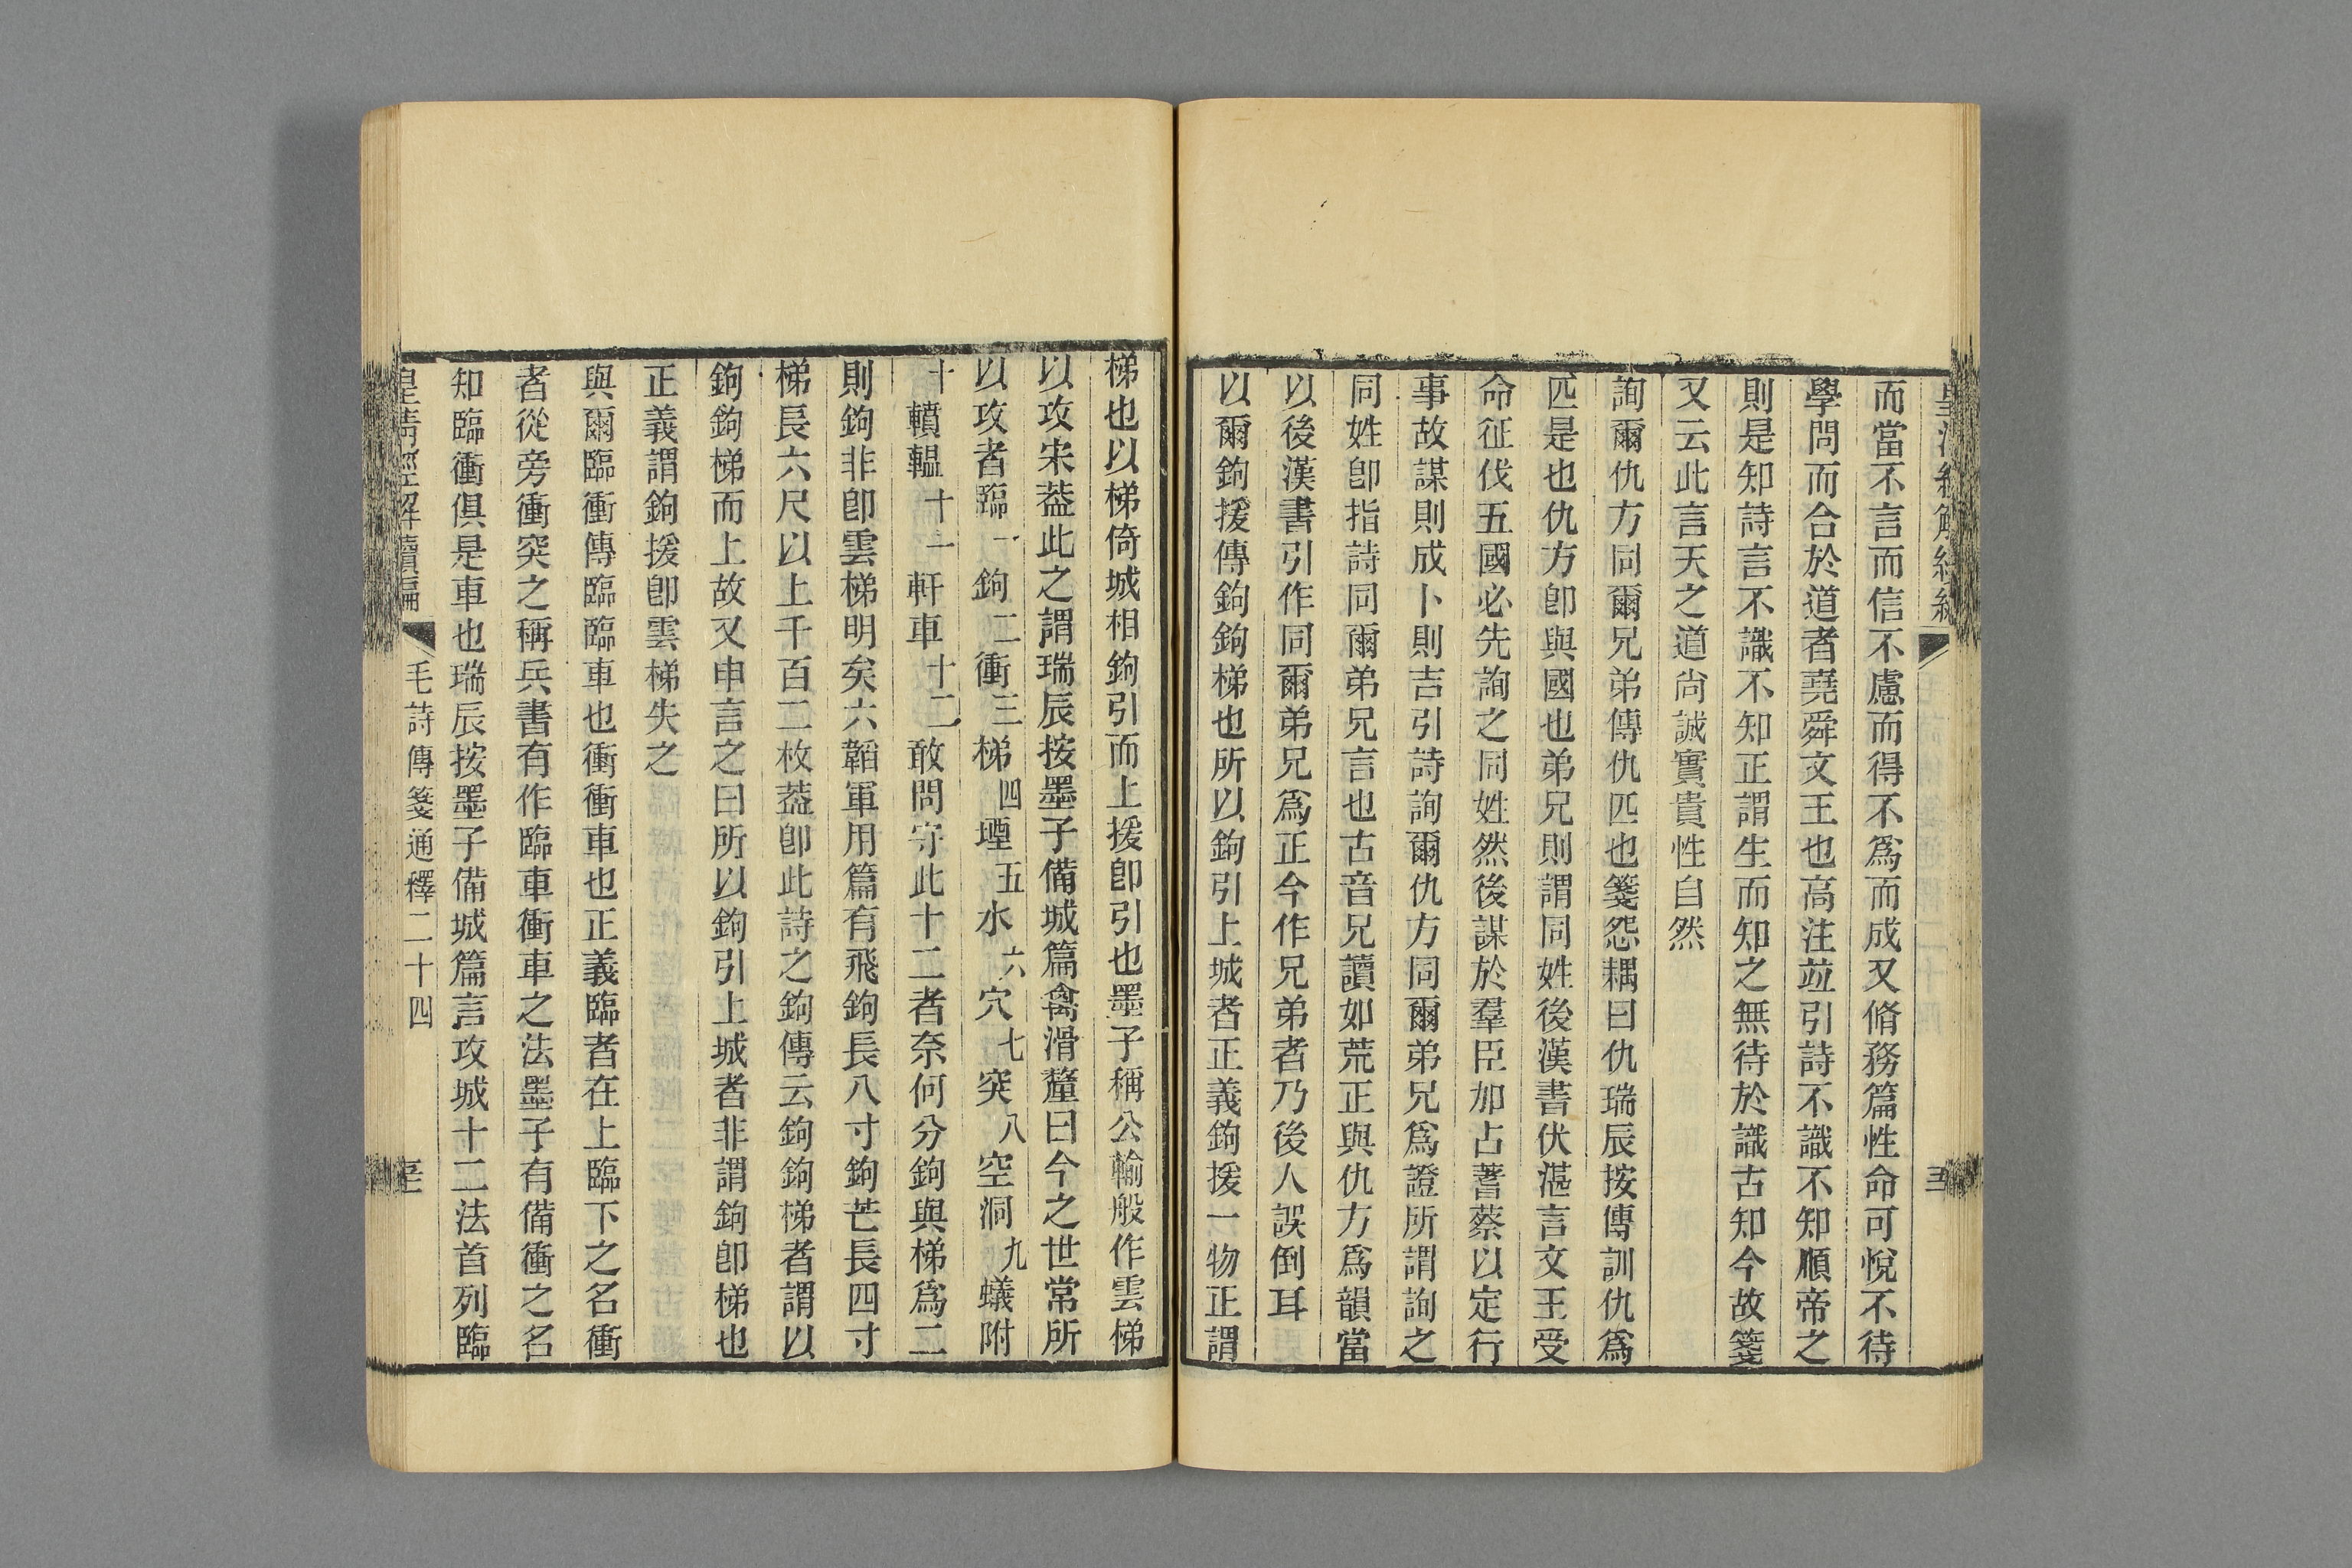 而當不言而信不慮而得不爲而成又脩務篇性命可悅不待
學問而合於道者堯舜文王也高注竝引詩不識不知順帝之
則是知詩言不識不知正謂生而知之無待於識古知今故箋
又云此言天之道尙誠實貴性自然
詢爾仇方同爾兄弟傳仇匹也箋怨耦曰仇瑞辰按傳訓仇爲
匹是也仇方卽與國也弟兄則謂同姓後漢書伏湛言文王受
命征伐五國必先詢之同姓然後謀於羣臣加占蓍蔡以定行
事故謀則成卜則吉引詩詢爾仇方同爾弟兄爲證所謂詢之
同姓卽指詩同爾弟兄言也古音兄讀如荒正與仇方爲韻當
以後漢書引作同爾弟兄爲正今作兄弟者乃後人誤倒耳
以爾鉤援傳鉤鉤梯也所以鉤引上城者正義鉤援一物正謂
梯也以梯倚城相鉤引而上援卽引也墨子稱公輸般作雲梯
以攻宋葢此之謂瑞辰按墨子備城篇禽滑釐曰今之世常所
以攻者臨一鉤二衝三梯四堙五水六穴七突八空洞九蟻附
十轒轀十一軒車十二敢問守此十二者奈何分鉤與梯爲二
則鉤非卽雲梯明矣六韜軍用篇有飛鉤長八寸鉤芒長四寸
梯長六尺以上千百二枚葢卽此詩之鉤傳云鉤鉤梯者謂以
鉤鉤梯而上故又申言之曰所以鉤引上城者非謂鉤卽梯也
正義謂鉤援卽雲梯失之
與爾臨衝傳臨臨車也衝衝車也正義臨者在上臨下之名衝
者從旁衝突之稱兵書有作臨車衝車之法墨子有備衝之名
知臨衝俱是車也瑞辰按墨子備城篇言攻城十二法首列臨
皇淸經解續編 毛詩傳箋通釋二十四